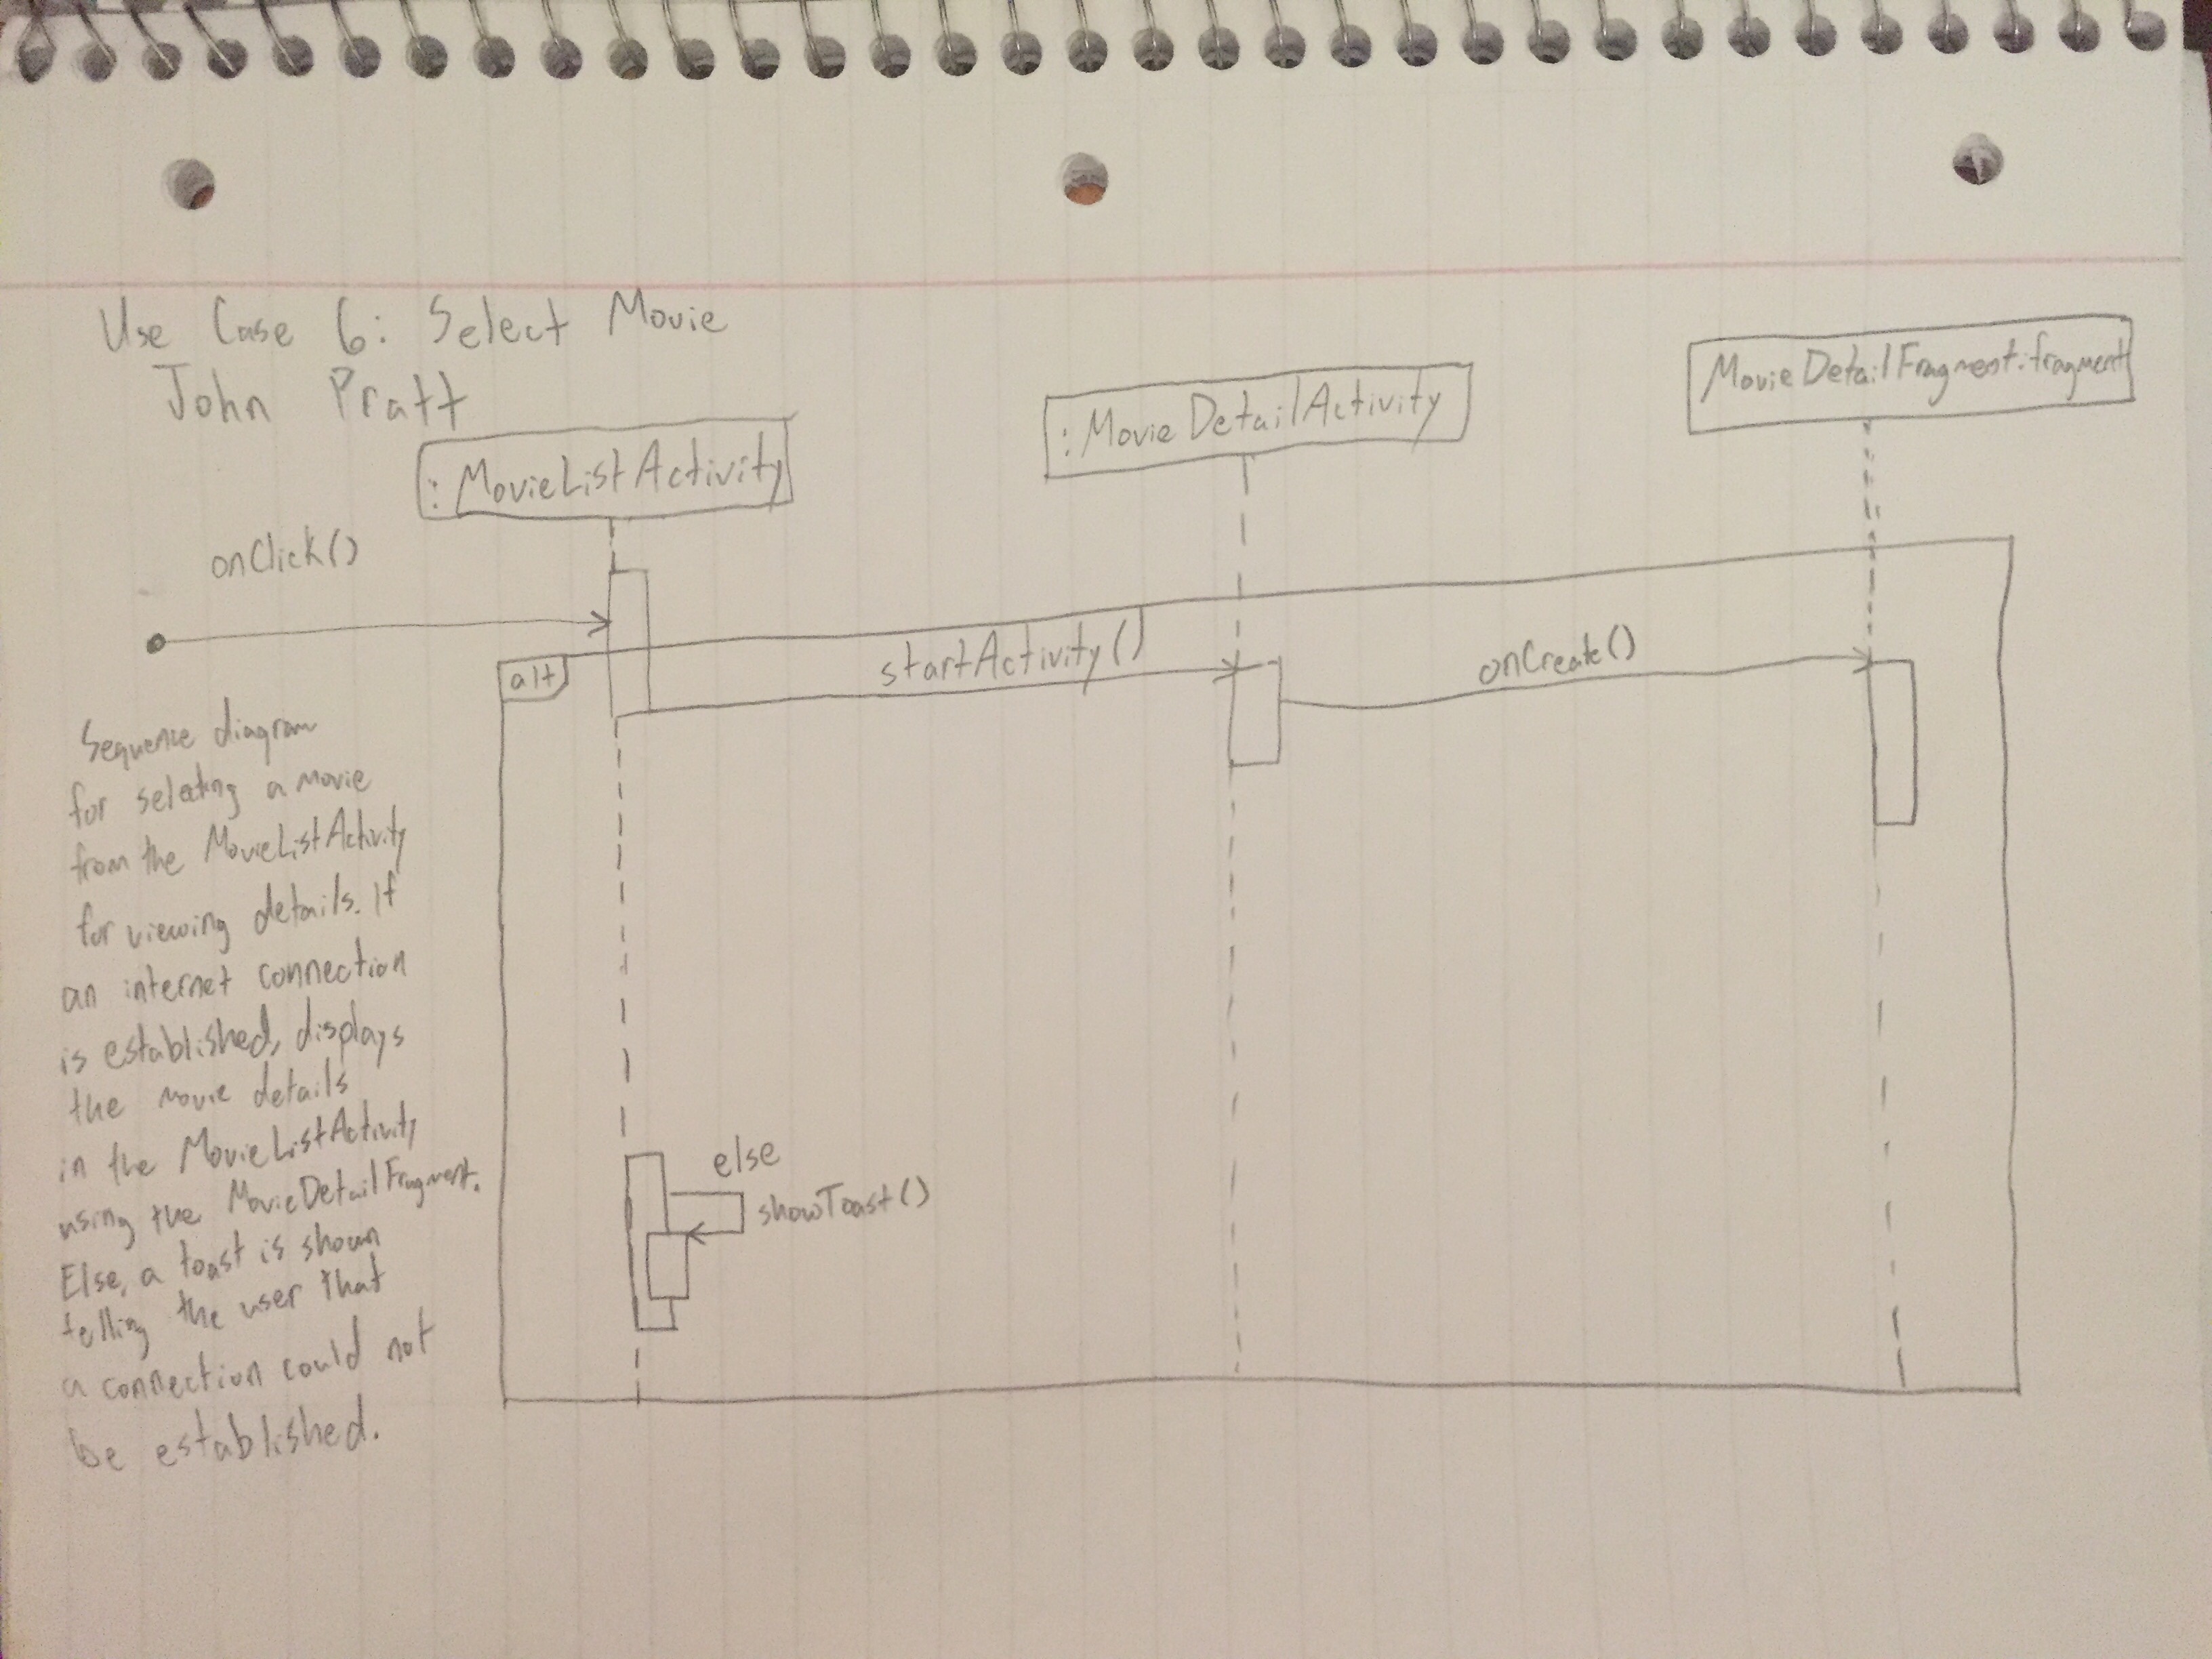 Use Case 6: Select Movie
John Pratt
:MovieListActivity
:MovieDetailActivity
MovieDetailFragment:fragment
onClick()
alt
startActivity()
onCreate()
else
showToast()
Sequence diagram
for selecting a movie
from the MovieListActivity
for viewing details. If
an internet connection
is established, displays
the movie details
in the MovieListActivity
using the MovieDetailFragment.
Else, a toast is shown
telling the user that
a connection could not
be established.